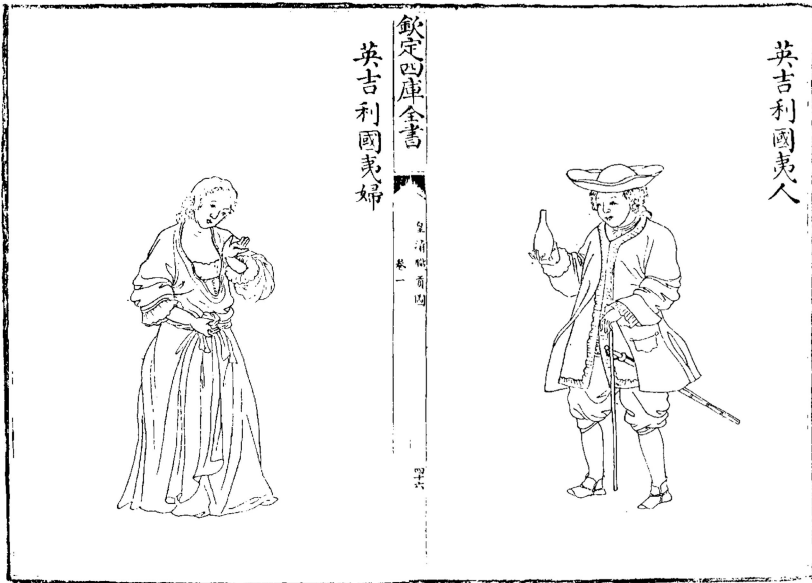 英吉利國夷人
欽定四庫全書
皇清職貢圖
卷一
四十六
英吉利國夷婦